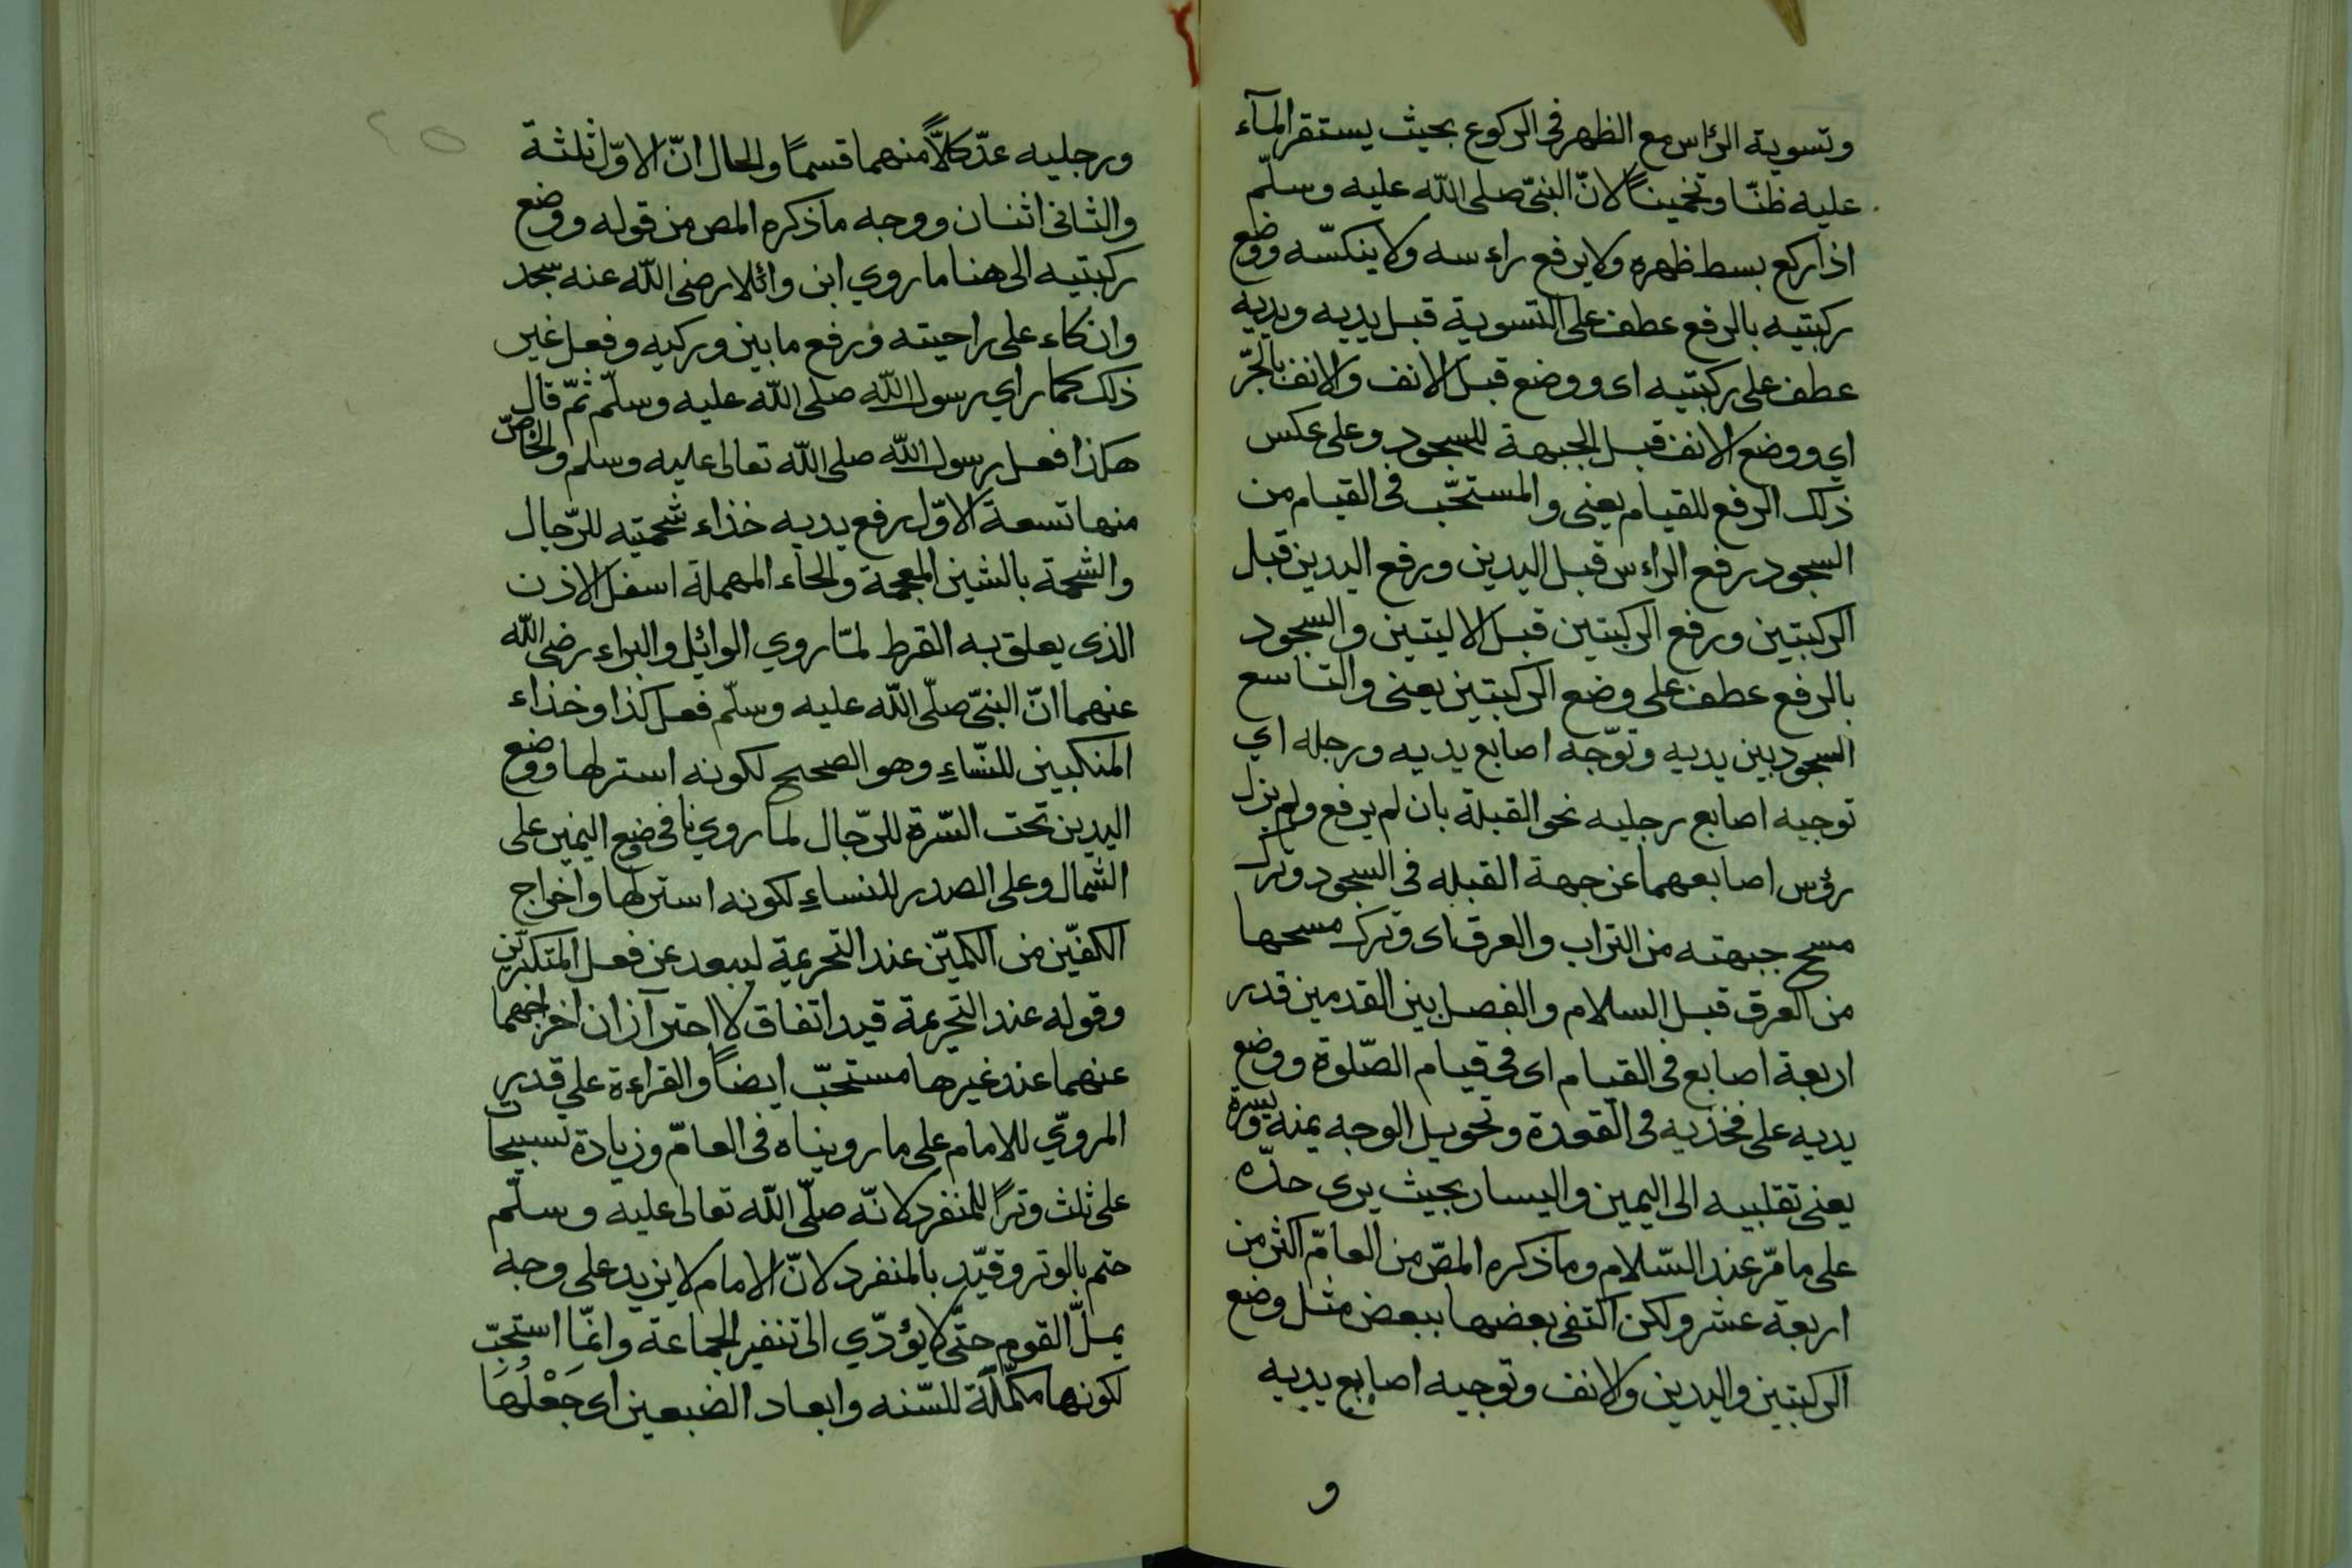 وتسوية الرٔاس مع الظهر فى الركوع بحيث يستقر المآء
عليه ظنّا وتخمينًا لانّ النبىّ صلى اللّه عليه وسلّم
اذا ركع بسط ظهره ولا يرفع راءسه ولا ينكسّه ووضع
ركبتيه بالرفع عطف على التسوية قبل يديه ويديه
عطف على ركبتيه اى ووضع قبل الانف والانف بالجّر
اي ووضع الانف قبل الجبهة للسجود وعلى عكس
ذلك الرفع للقيام يعنى والمستحّب فى القيام من
السجود رفع الراءس قبل اليدين ورفع اليدين قبل
الركبتين ورفع الركبتين قبل الاليتين والسجود
بالرفع عطف على وضع الركبتين يعنى والتاسع
السجود بين يديه وتوّجه اصابع يديه ورجله اي
توجيه اصابع رجليه نحو القبلة بان لم يرفع ولم يزل
رؤس اصابعهما عن جهة القبله فى السجود وترك
مسح جبهته من التراب والعرق اى وترك مسحها
من العرق قبل السلام والفصل بين القدمين قدر
اربعة اصابع فى القيام اى فى قيام الصّلوة ووضع
يديه على فخذيه فى القعدة وتحويل الوجه يمنه ويسرة
يعنى تقلبيه الى اليمين واليسار بحيث يرى حدّه
على مامّر عند السّلام وما ذكره المصّ من العامّ اكثر من
اربعة عشر ولكن اكتفى بعضها ببعض مثل وضع
الركبتين واليدين والانف وتوجيه اصابع يديه
و
٢٥
ورجليه عدّ كلاًّ منهما قسمًا والحال انّ الاوّل ثلثة
والثانى اثنان ووجه ما ذكره المص من قوله ووضع
ركبتيه الى هنا ما روي ابن وائلا رضى اللّه عنه سجد
وانكاء على راحيته ورفع ما بين وركيه وفعل غير
ذلك كما راي رسول اللّه صلى اللّه عليه وسلّم ثمّ قال
هكذا فعل رسول اللّه صلى اللّه تعالى عليه وسلم والخاصّ
منها تسعة الاوّل رفع يديه خذاء شحمتيه للرّجال
والشحمة بالشين المعجمة والحاء المهملة اسفل الاذن
الذى يعلق به القرط لمّا روي الوائل والبراء رضى اللّه
عنهما انّ النبىّ صلّى اللّه عليه وسلّم فعل كذا وخذاء
المنكبين للنسّاءِ وهو الصحيح لكونه استر لها ووضع
اليدين تحت السّرة للرّجال لما روينا فى وضع اليمين على
الشمال وعلى الصدر للنساءِ لكونه استر لها واخراج
الكفيّن من الكميّن عند التحريمة ليبعد عن فعل المتكبّرين
وقوله عند التحريمة قيد اتفاق لا احترآز ان اخراجهما
عنهما عند غيرها مستحبّ ايضاً والقراءة على قدر
المروّي للامام على ما رويناه فى العامّ وزيادة تسبيحا
على ثلث وترًا للمنفرد لانّه صلّى اللّه تعالى عليه وسلّم
ختم بالوتر وقيّد بالمنفرد لانّ الامام لا يزيد على وجه
يملّ القوم حتّى لا يؤدّي الى تنفير الجماعة وانمّا استحبّ
لكونها مكمّلَة للسّنه وابعاد الضبعين اى جَعْلُهَا